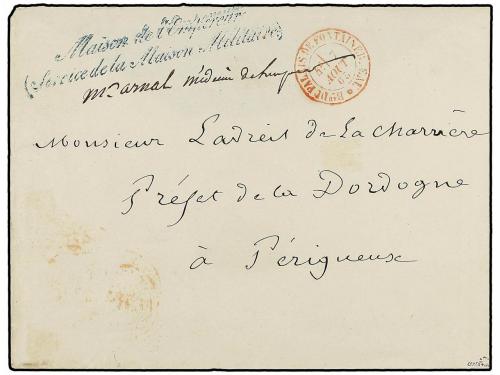 Maison de l'Empereur
(Service de la Maison Militaire)
Mr arnal médecin de l'empereur
Bau DU PALAIS DE FONTAINEBLEAU
7
AOUT
Monsieur Ladreit de La Charrière
Préfet de la Dordogne
à Périgueux